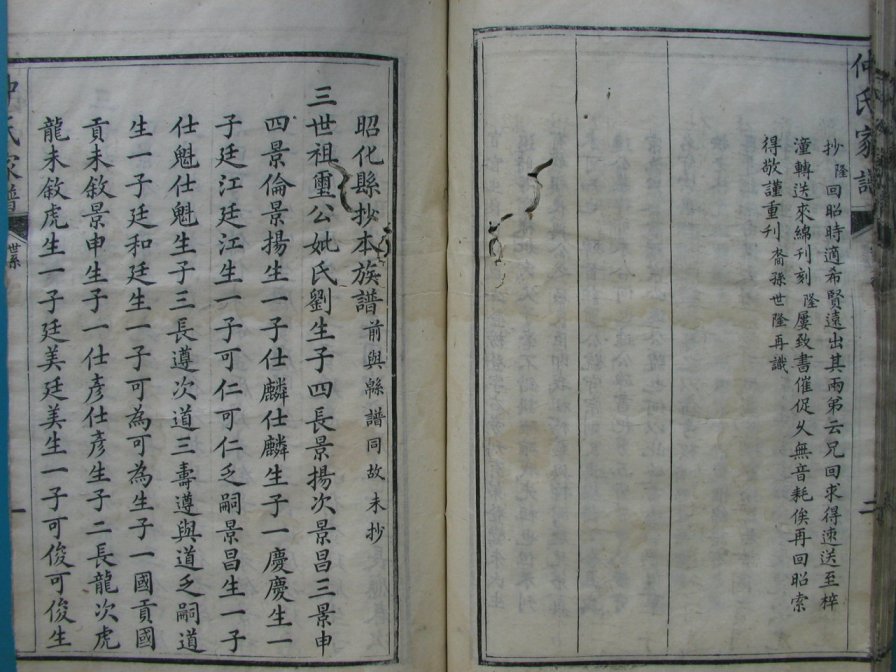 仲氏家譜
二
抄隆回昭時適希賢遠出其兩弟云兄回求得速送至梓
潼轉送來綿刊刻隆屢致書催促久無音耗俟再回昭索
得敬謹重刊裔孫世隆再識
昭化縣抄本族譜前與緜譜同故未抄
三世祖璽公妣氏劉生子四長景揚次景昌三景申
四景倫景揚生一子仕麟仕麟生子一慶慶生一
子廷江廷江生一子可仁可仁乏嗣景昌生一子
仕魁仕魁生子三長遵次道三壽遵與道乏嗣道
生一子廷和廷生一子可為可為生子一國貢國
貢未敘景申生子一仕彥仕彥生子二長龍次虎
龍未敘虎生一子廷美廷美生一子可俊可俊生
氏家譜
世系
一